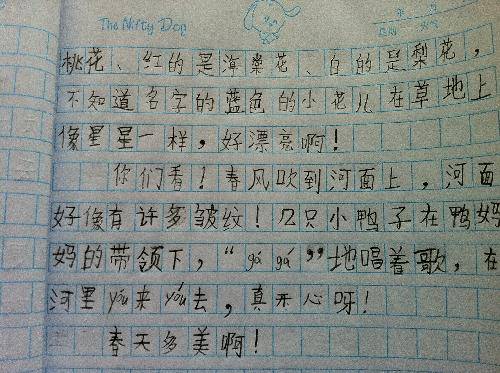 The Nifty Dog
桃花、红的是海棠花、白的是梨花，
不知道名字的蓝色的小花儿在草地上
像星星一样，好漂亮啊！
你们看！春风吹到河面上，河面
好像有许多皱纹！几只小鸭子在鸭妈
妈的带领下，“gá gá”地唱着歌，在
河里yóu来yóu去，真开心呀！
春天多美啊！